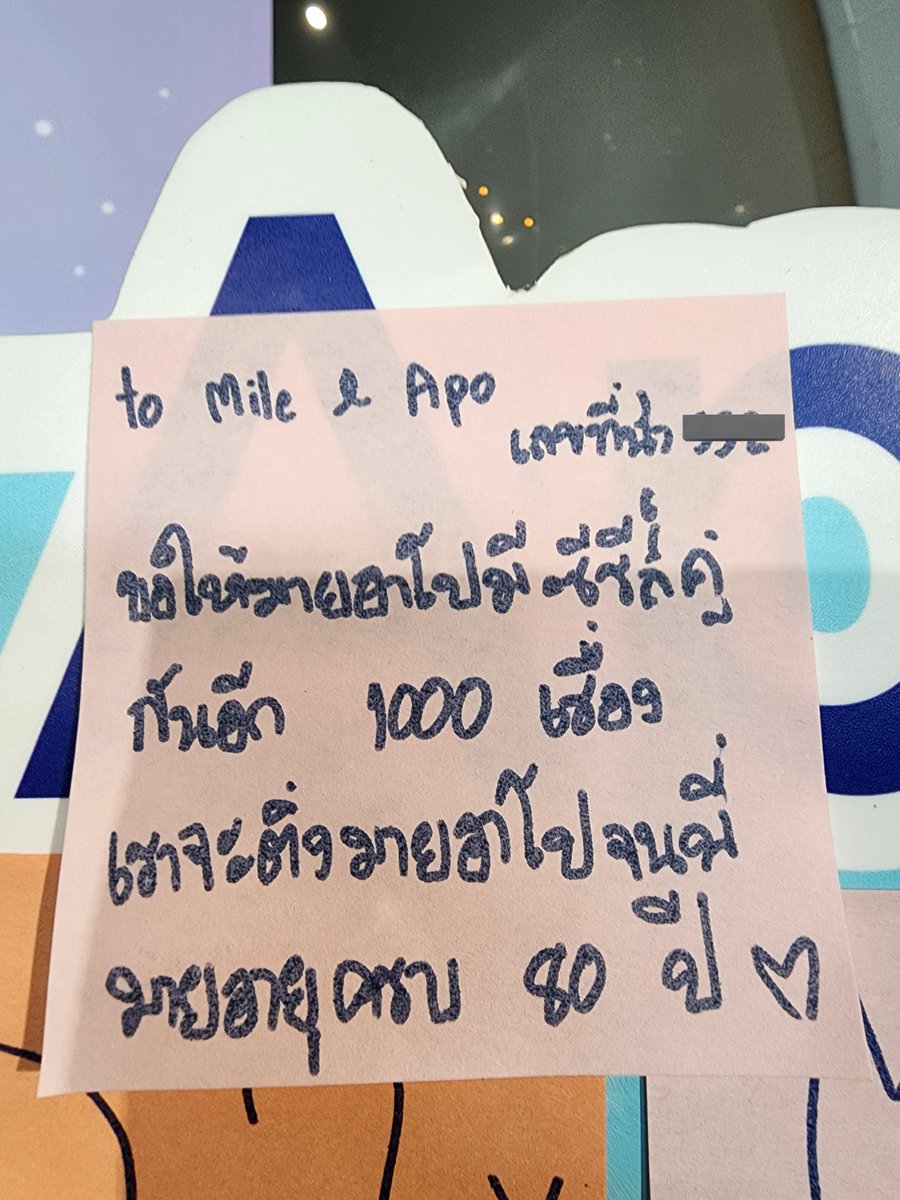 to Mile & Apo
เลขที่นั่ง
ขอให้มายอาโปมี ซีรีส์คู่
กันอีก 1000 เรื่อง
เราจะติ่งมายอาโปจนพี่
มายอายุครบ 80 ปี ♡